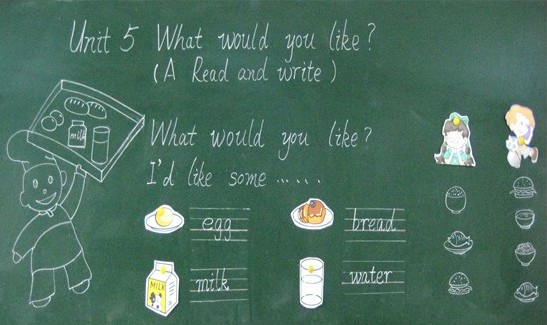 Unit 5 What would you like?
(A Read and write)
milk
What would you like?
I'd like some ......
egg
bread
MILK
milk
water